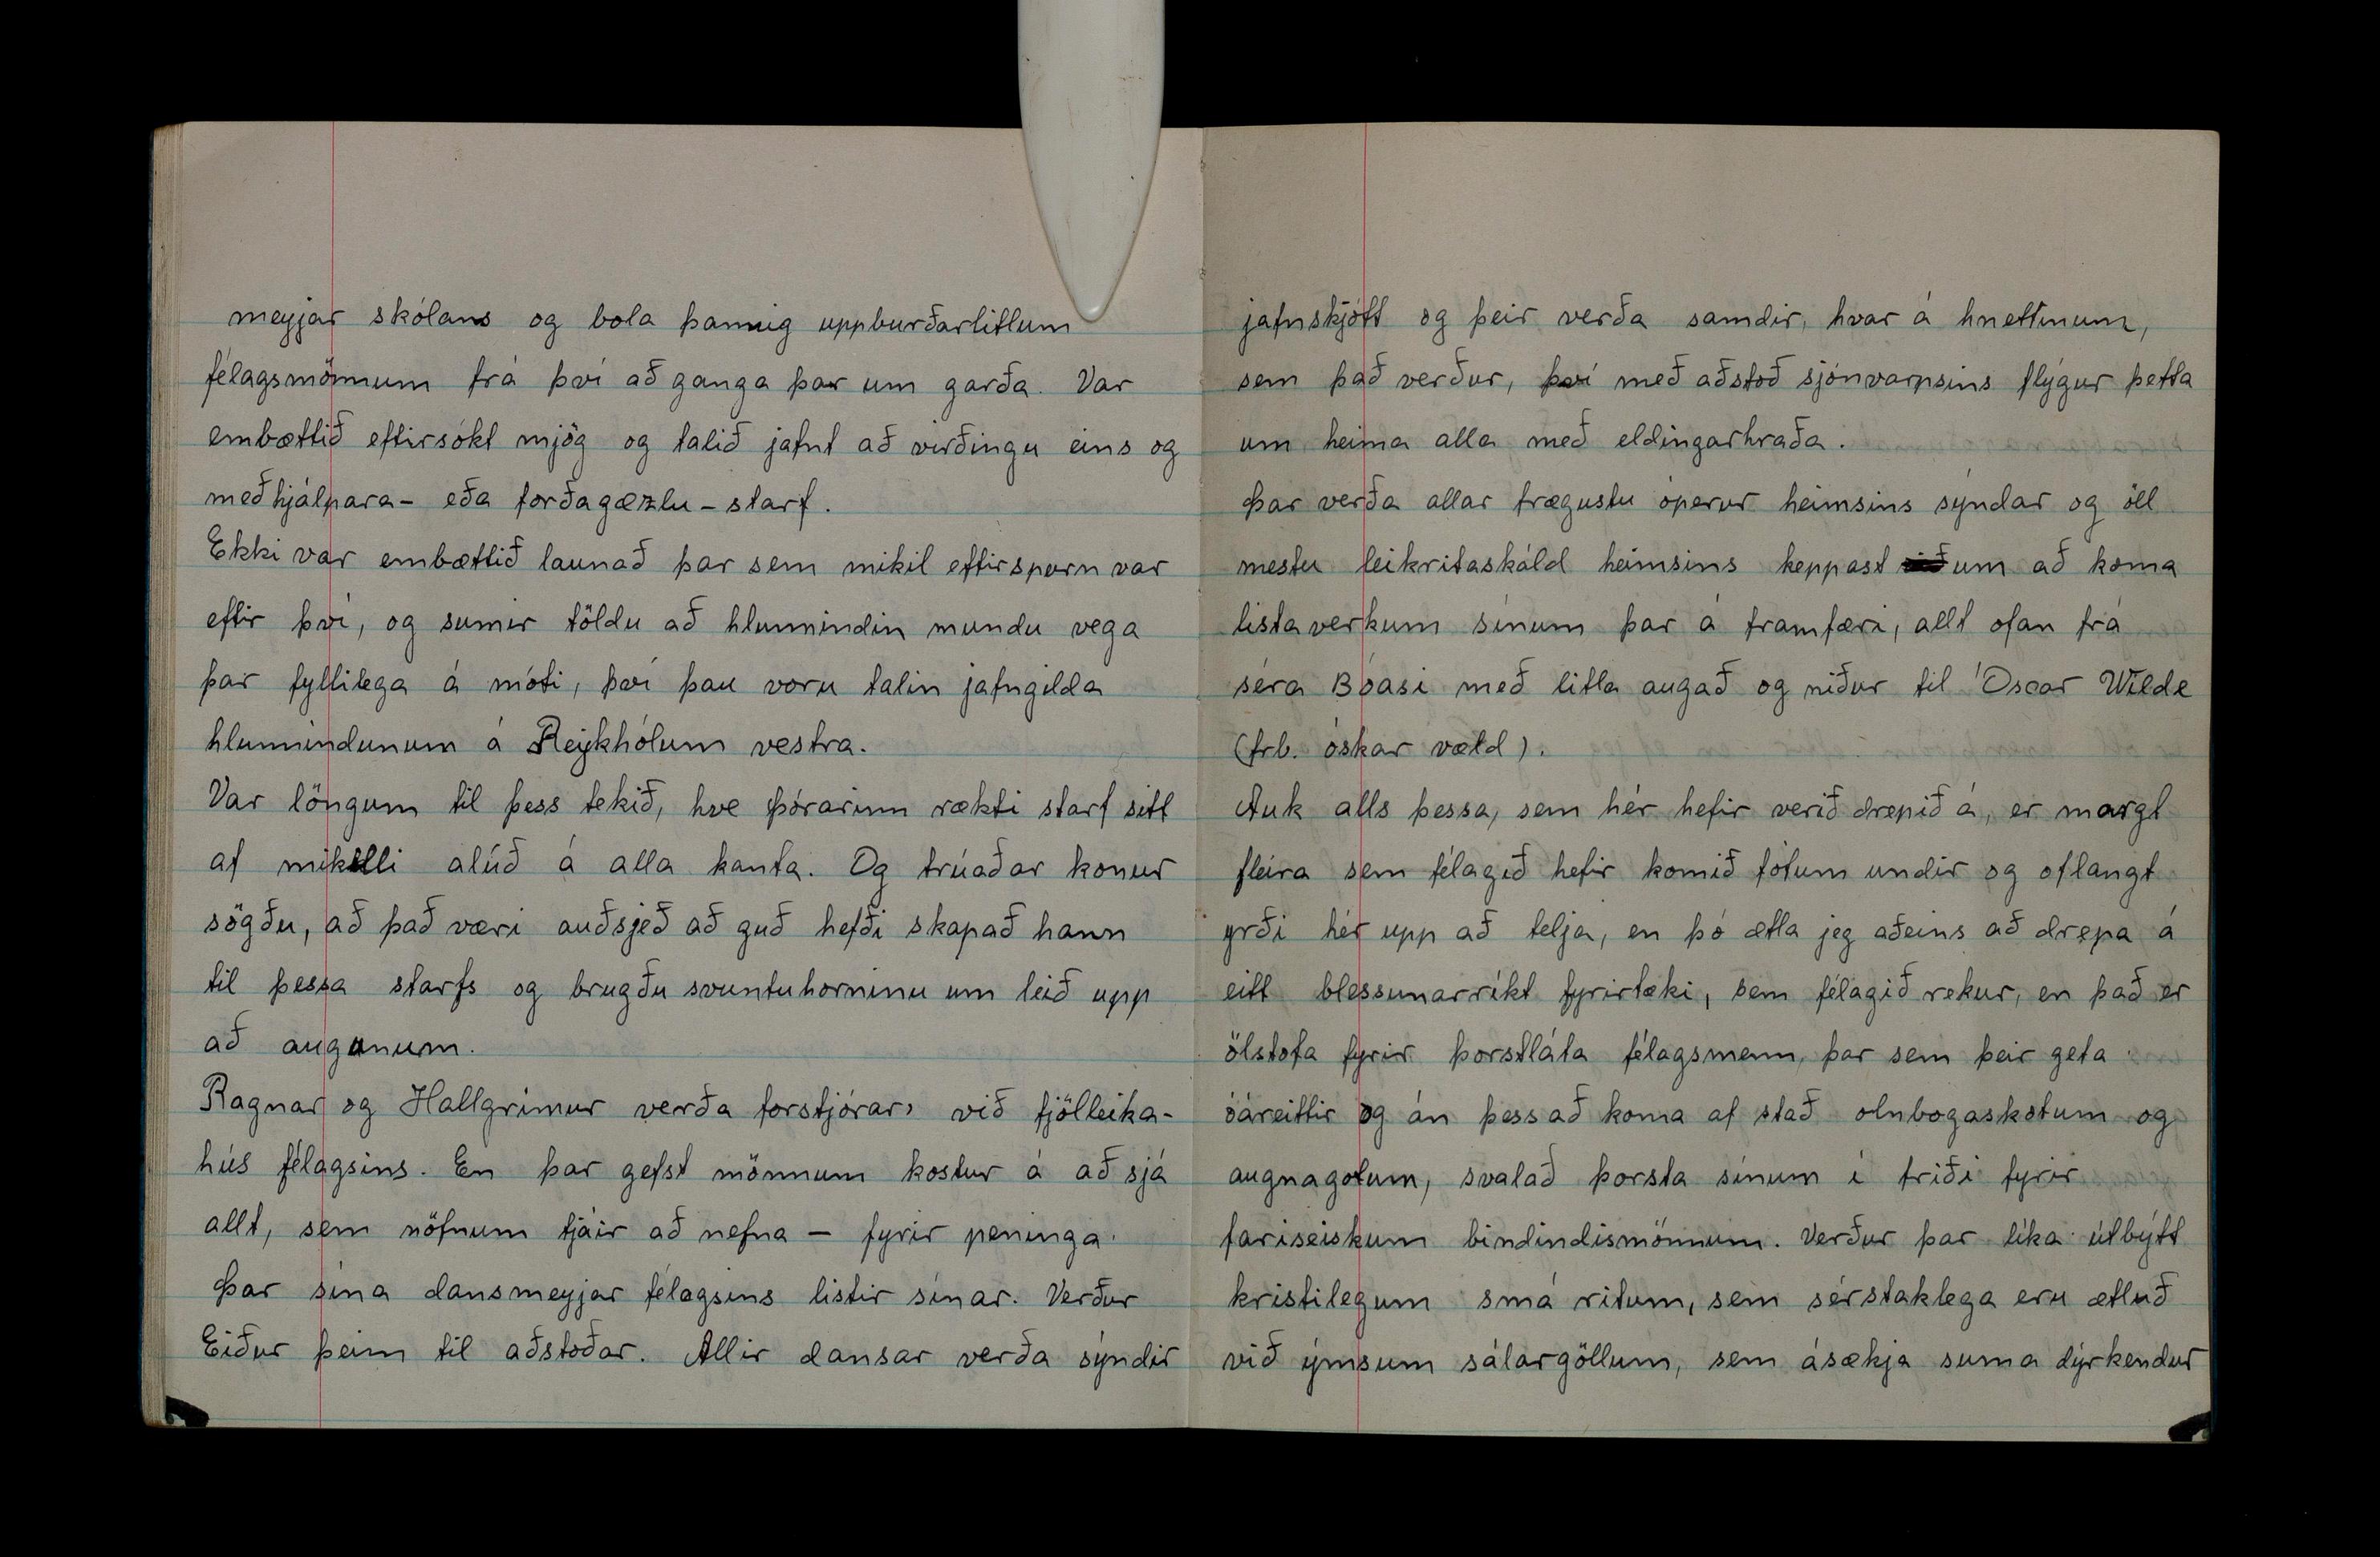 meyjar skólans og bola þannig uppburðarlitlum
félagsmönnum frá því að ganga þar um garða. Var
embættið eftirsókt mjög og talið jafnt að virðingu eins og
meðhjálpara- eða forðagæzlu-starf.
Ekki var embættið launað þar sem mikil eftirspurn var
eftir því, og sumir töldu að hlunnindin mundu vega
þar fyllilega á móti, því þau voru talin jafngilda
hlunnindunum á Reykhólum vestra.
Var löngum til þess tekið, hve Þórarinn rækti starf sitt
af mikilli alúð á alla kanta. Og trúaðar konur
sögðu, að það væri auðsjeð að guð hefði skapað hann
til þessa starfs og brugðu svuntuhorninu um leið upp
að augunum.
Ragnar og Hallgrímur verða forstjórar, við fjölleika-
hús félagsins. En þar gefst mönnum kostur á að sjá
allt, sem nöfnum tjáir að nefna – fyrir peninga.
Þar sína dansmeyjar félagsins listir sínar. Verður
Eiður þeim til aðstoðar. Allir dansar verða sýndir
jafnskjótt og þeir verða samdir, hvar á hnettinum,
sem það verður, því með aðstoð sjónvarpsins flýgur þetta
um heima alla með eldingarhraða.
Þar verða allar frægustu óperur heimsins sýndar og öll
mestu leikritaskáld heimsins keppast um að koma
listaverkum sínum þar á framfæri, allt ofan frá
séra Bóasi með litla augað og niður til Óscar Wilde
(frb. óskar væld).
Auk alls þessa, sem hér hefir verið drepið á, er margt
fleira sem félagið hefir komið fótum undir og oflangt
yrði hér upp að telja, en þó ætla jeg aðeins að drepa á
eitt blessunarríkt fyrirtæki, sem félagið rekur, en það er
ölstofa fyrir þorstláta félagsmenn, þar sem þeir geta
óáreittir og án þess að koma af stað olnbogaskotum og
augnagotum, svalað þorsta sínum í friði fyrir
fariseiskum bindindismönnum. Verður þar líka útbýtt
kristilegum smá ritum, sem sérstaklega eru ætluð
við ýmsum sálargöllum, sem ásækja suma dýrkendur